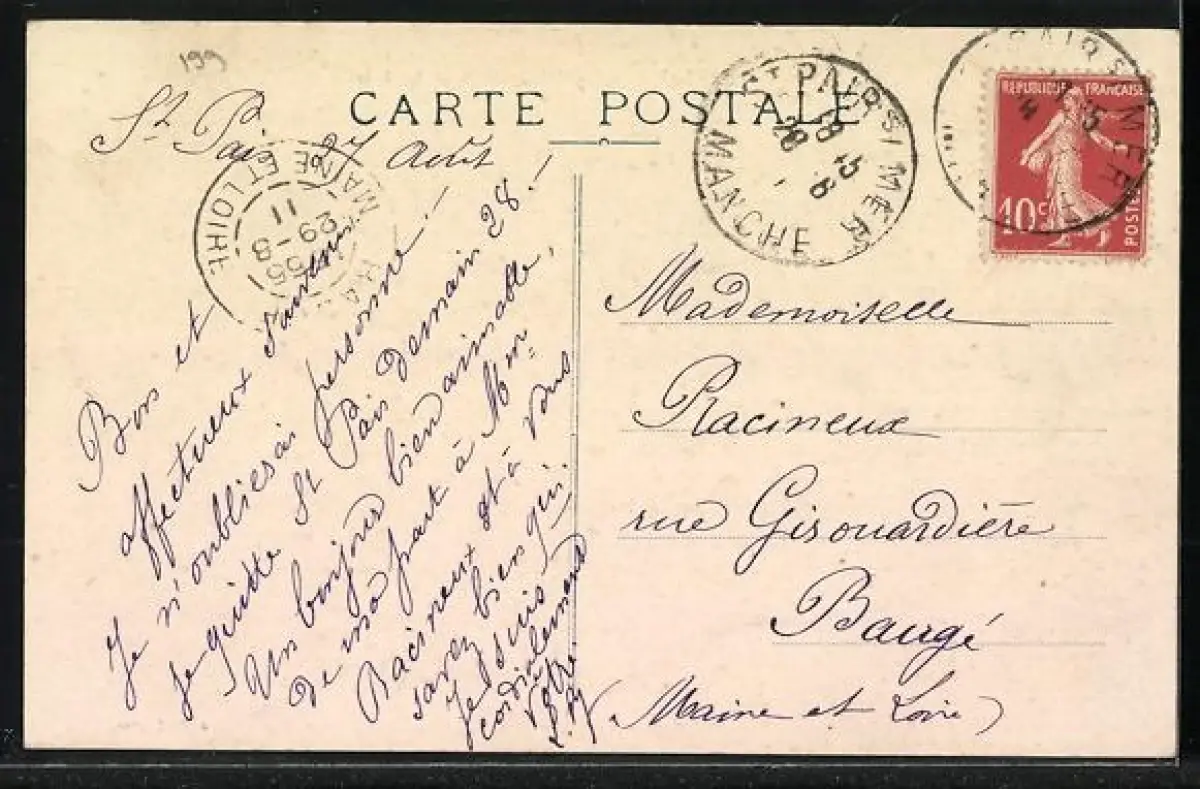 199
CARTE POSTALE
St Pair 27 Août
Bon et
affectueux souvenir
Je n'oublierai personne !
Je quitte St Pair demain 28. !
Un bonjour bien aimable,
de ma part à Mme
Racineux et à vous
savez bien qui.
Je suis
cordialement
vôtre.
ST PAIR S/ MER
28-8
MANCHE
MAINE ET LOIRE
11
29-8
RÉPUBLIQUE FRANÇAISE
10c
POSTES
Mademoiselle
Racineux
rue Girouardière
Baugé
(Maine et Loire)